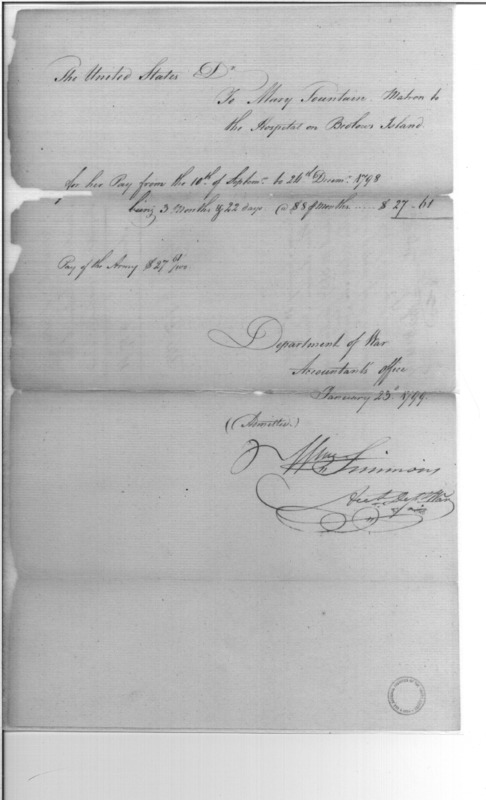 The United States Dr
To Mary Fountain Matron to
the Hospital on Bedlows Island.
for her Pay from the 10th of Septemr to 24th Decemr 1798
being 3 Months & 22 days @ $8 Months ..... $ 27 - 61
Pay of the Army $ 27 61/100
Department of War
Accountants office
January 23d 1799.
(Admitted.)
Wm Simmons